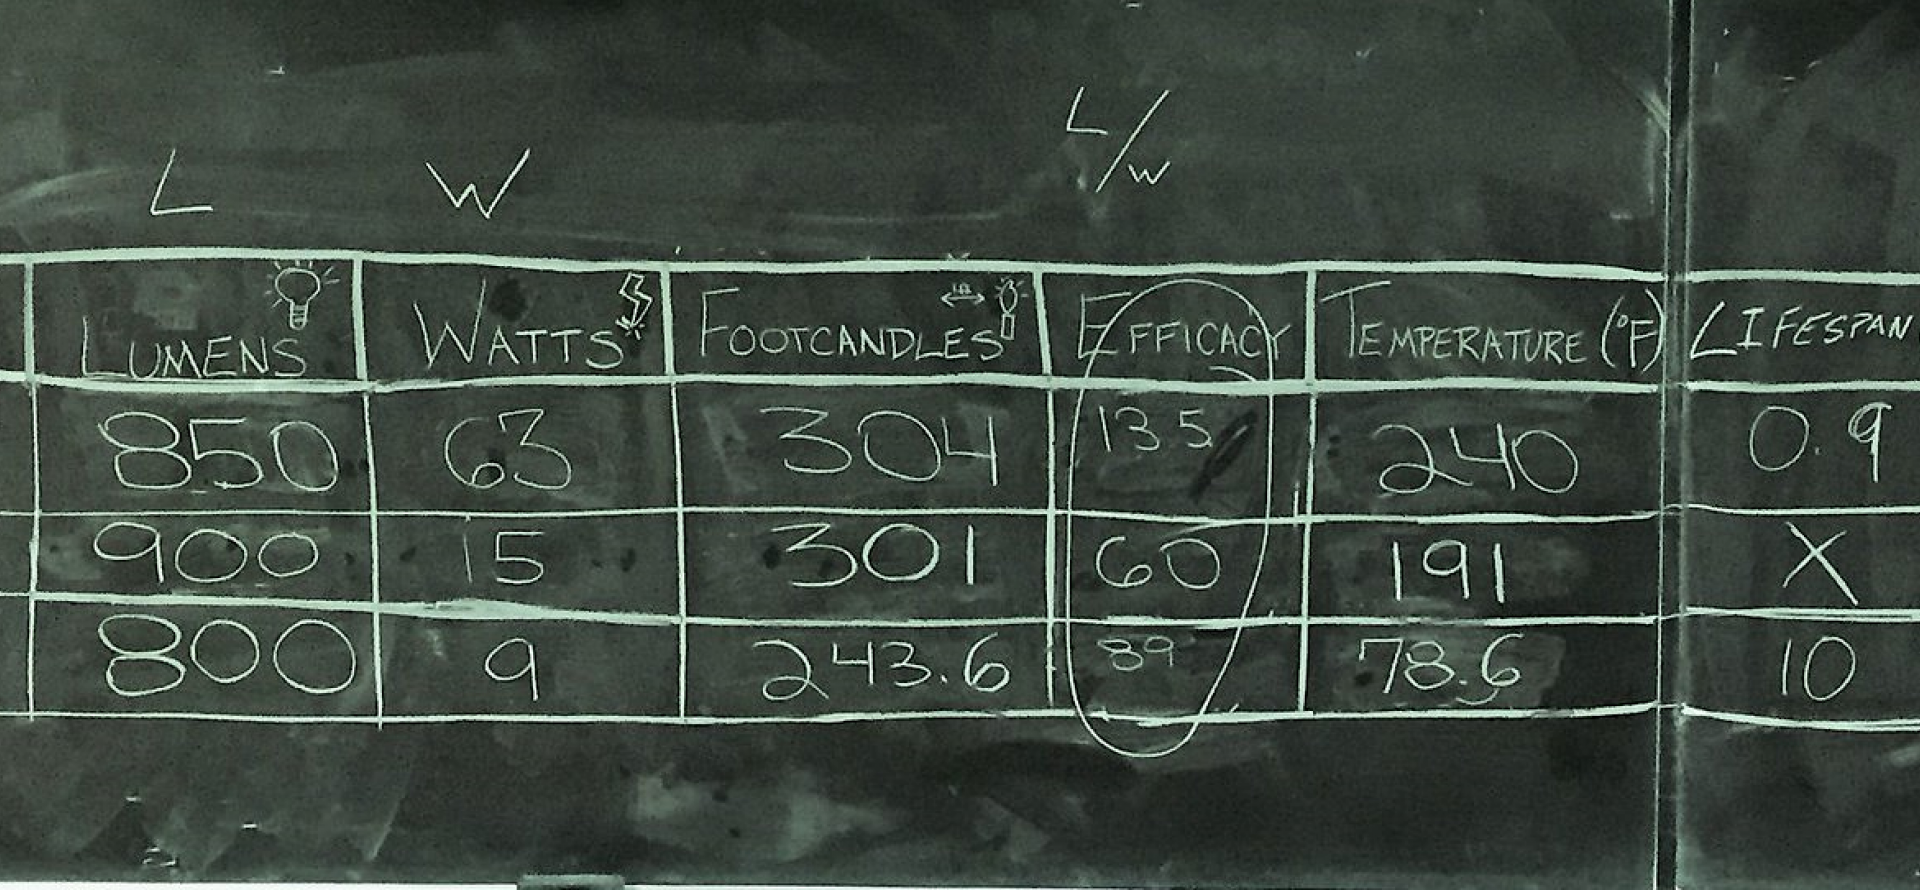 L W L/W
LUMENS WATTS FOOTCANDLES EFFICACY TEMPERATURE (°F) LIFESPAN
850 63 304 13.5 240 0.9
900 15 301 60 191 X
800 9 243.6 89 78.6 10